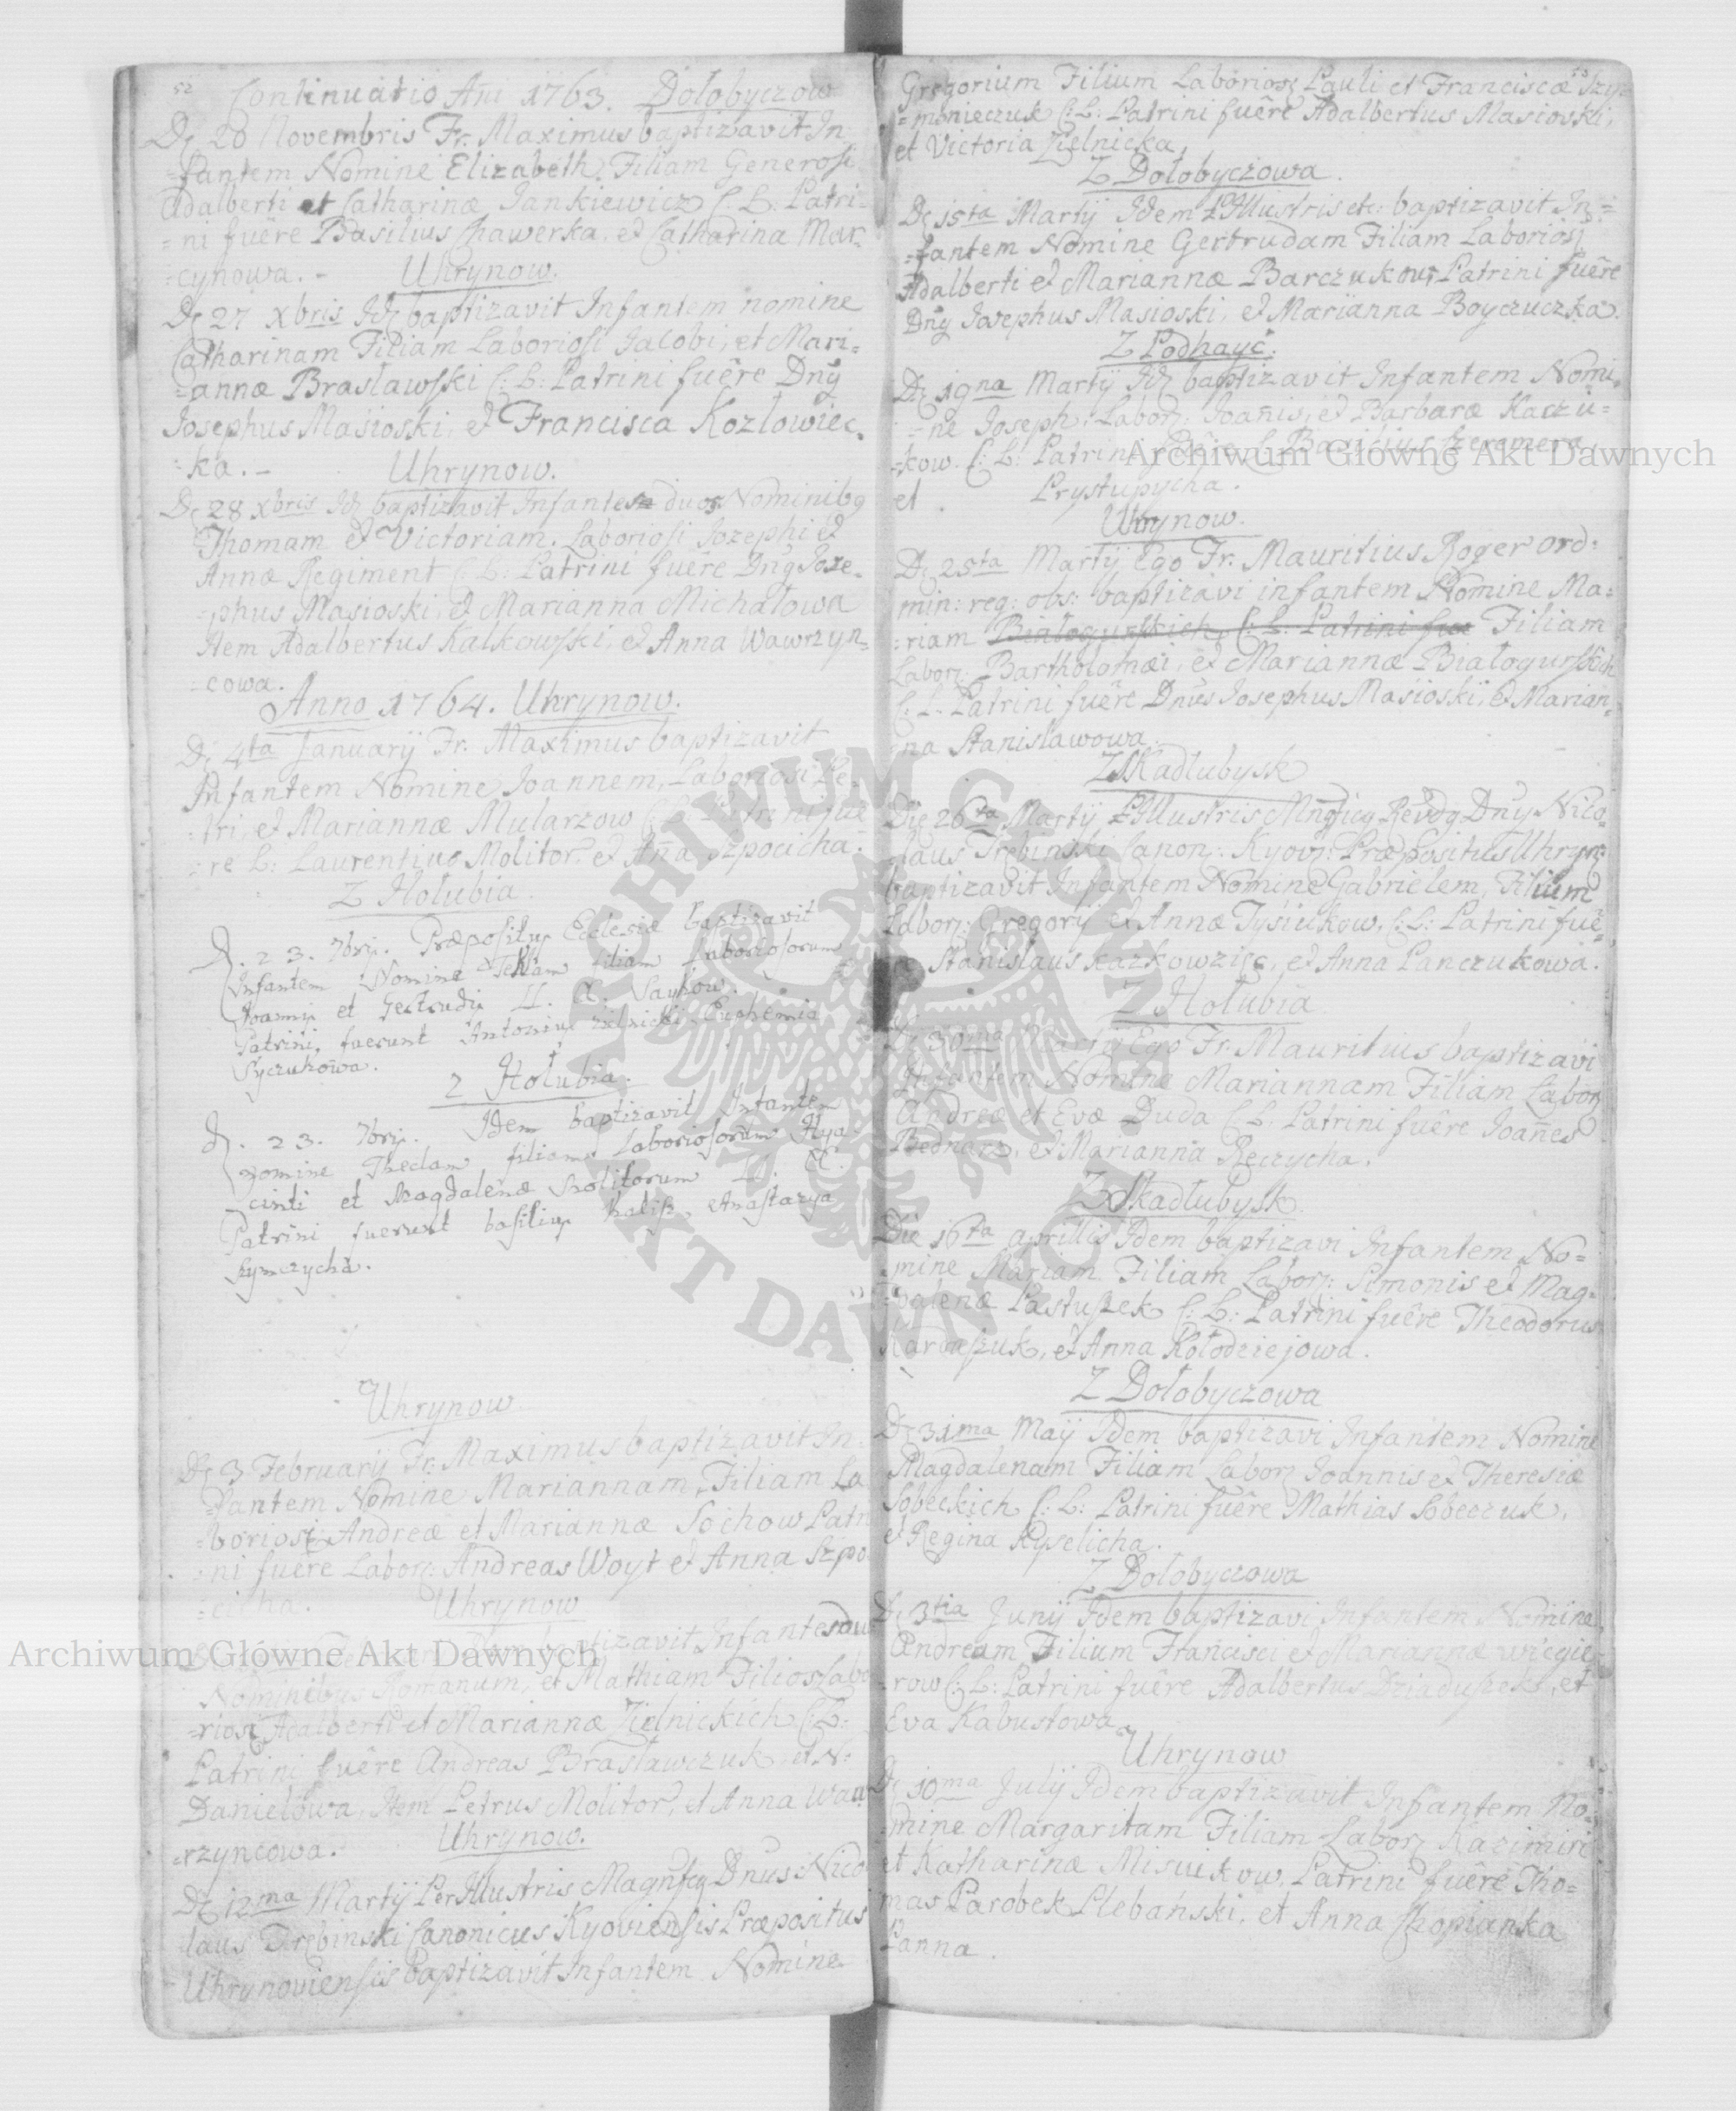 52
Continuatio Añi 1763. Dołobyczow
Dį 20 Novembris Fr. Maximus baptizavit In
=fantem Nomine Elizabeth, Filiam Generosi
Adalberti et Catharinæ Jankiewicz C: L: Patri=
=ni fuêre Basilius Chawerka, et Catharina Mar=
=cynowa. - Uhrynow.
Dį 27 Xbris Idį baptizavit Infantem nomine
Catharinam Filiam Laboriosi Jacobi, et Mari=
=annæ Brasławski C: L: Patrini fuêre Dnų
Josephus Masioski, et Francisca Kozłowiec=
=ka. - Uhrynow.
Dį 28 Xbris Idį baptizavit Infantes duos Nominibų
Thomam et Victoriam. Laboriosi Jozephi et
Annæ Regiment C: L: Patrini fuêre Dnų Joze=
=phus Masioski, et Marianna Michałowa
Item Adalbertus Kalkowski, et Anna Wawrzyn=
=cowa.
Anno 1764. Uhrynow.
Dį 4ta Januarij Fr. Maximus baptizavit
Infantem Nomine Joannem, Laboriosi Pe=
=tri, et Mariannæ Mularzow C: L: Patrini fuê
=re L: Laurentius Molitor, et Aña Szpocicha.
Z Hołubia.
D. 23. 7bris. Præpositus Eclesiæ baptizavit
Infantem Nomine Teklam filiam Laboriosorum
Joannis et Gertrudis LL. C. Saykow.
Patrini fuerunt Antonius Zielnicki, Euphemia
Syczukowa.
Z Hołubia.
D. 23. 7bris. Idem baptizavit Infantem
nomine Theclam filiam Laboriosorum Hya
cinti et Magdalenæ Molitorum L. C.
Patrini fuerunt basilius halisz, Anastazya
Szymczycha.
Uhrynow
Dį 3 Februarij Fr. Maximus baptizavit In=
=fantem Nomine Mariannam, Filiam La
=boriosi Andreæ et Mariannæ Sochow Patri
=ni fuêre Laborį: Andreas Woyt et Anna Szpo
=cicha. Uhrynow
baptizavit Infantes duos
Nominibus Romanum, et Mathiam Filios Labo
=riosi Adalberti et Mariannæ Zielnickich C: L:
Patrini fuêre Andreas Brasławczuk, et N:
Daniełowa, Item Petrus Molitor, et Anna Waw
=rzyncowa. Uhrynow.
Dį 12ma Martij PerIllustris Magnficų Dnus Nico
laus Trębinski Canonicus Kyoviensis Præpositus
Uhrynoviensis baptizavit Infantem Nomine
53
Gregorium Filium Laboriosį Pauli et Franciscæ Szy
=monieczuk C: L: Patrini fuêre Adalbertus Masiovski,
et Victoria Zielnicka.
Z Dołobyczowa.
Dį 15ta Martij Idem PIllustris etc: baptizavit In=
=fantem Nomine Gertrudam Filiam Laboriosį
Adalberti et Mariannæ Barczukow, Patrini fuêre
Dnų Josephus Masioski, et Marianna Boyczuczka.
Z Podhayc.
Dį 19na Martij Idį baptizavit Infantem Nomi=
=ne Joseph, Laborį: Joañis, et Barbaræ Kaczu=
=kow. C: L: Patrini fuêre L. Basilius Szeremera
et Prystupycha.
Uhrynow.
Dį 25ta Martij Ego Fr. Mauritius Roger ord:
min: reg: obs: baptizavi infantem Nomine Ma=
=riam Białogurskich, C: L: Patrini fue Filiam
Laborį: Bartholomæi, et Mariannæ Białogurskich
C: L: Patrini fuêre Dnus Josephus Masioski, et Marian=
=na Stanisławowa.
Z Kadłubysk
Die 26ta Martij PIllustris Mngficų Revdų Dnų Nico=
=laus Trębinski Canonį: Kyovį: Præpositus Uhrynį:
baptizavit Infantem Nomine Gabrielem, Filium
Laborį: Gregorij et Annæ Tysiukow, C: L: Patrini fuê=
Stanislaus Kazkowzicz, et Anna Panczukowa.
Z Hołubia
Dį 30ma Martij Ego Fr. Mauritius baptizavi
Infantem Nomine Mariannam Filiam Laborį
Andreæ et Evæ Duda C: L. Patrini fuêre Joañes
Bednarz, et Marianna Reczycha.
Z Kadłubysk.
Die 16ta aprillis Idem baptizavi Infantem No=
=mine Mariam Filiam Laborį: Simonis et Mag=
=dalenæ Pastuszek C: L: Patrini fuêre Theodorus
Karcaszuk, et Anna Kołodziejowa.
Z Dołobyczowa
Dį 31ma Maij Idem baptizavi Infantem Nomine
Magdalenam Filiam Laborį Joannis et Theresiæ
Sobeckich C: L: Patrini fuêre Mathias Sobeczuk,
et Regina Kyselicha.
Z Dołobyczowa
Dį 3tia Junij Idem baptizavi Infantem Nomine
Andream Filium Francisci et Mariannæ Wiegie
=row C: L: Patrini fuêre Adalbertus Dziaduszek, et
Eva Kabustowa
Uhrynow
Dį 10ma Julij Idem baptizavit Infantem No=
=mine Margaritam Filiam Laborį Kazimiri
et Katharinæ Misiukow, Patrini fuêre Tho=
mas Parobek Plebański, et Anna Chopianka
Panna.
Archiwum Główne Akt Dawnych
Archiwum Główne Akt Dawnych
ARCHIWUM GŁÓWNE
AKT DAWNYCH